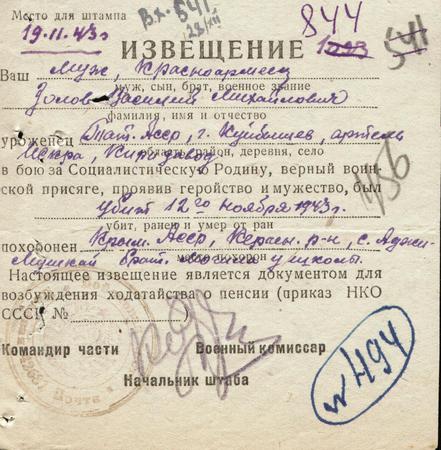 Место для штампа
Вх. 541
844
19.11.43г.
ИЗВЕЩЕНИЕ
541
Ваш муж, красноармеец
муж, сын, брат, военное звание
Василий Михайлович
фамилия, имя и отчество
уроженец Тат. Асср, г. Куйбышев, артель
Искра,
район, деревня, село
в бою за Социалистическую Родину, верный воин-
ской присяге, проявив геройство и мужество, был
убит 12го ноября 1943г.
убит, ранен и умер от ран
похоронен Крым. Асср, Керчен. р-н, с. Аджи-
Мушкай Брат. могила у школы.
место похорон
Настоящее извещение является документом для
возбуждения ходатайства о пенсии (приказ НКО
СССР №).
Командир части
Военный комиссар
Начальник штаба
№ 494